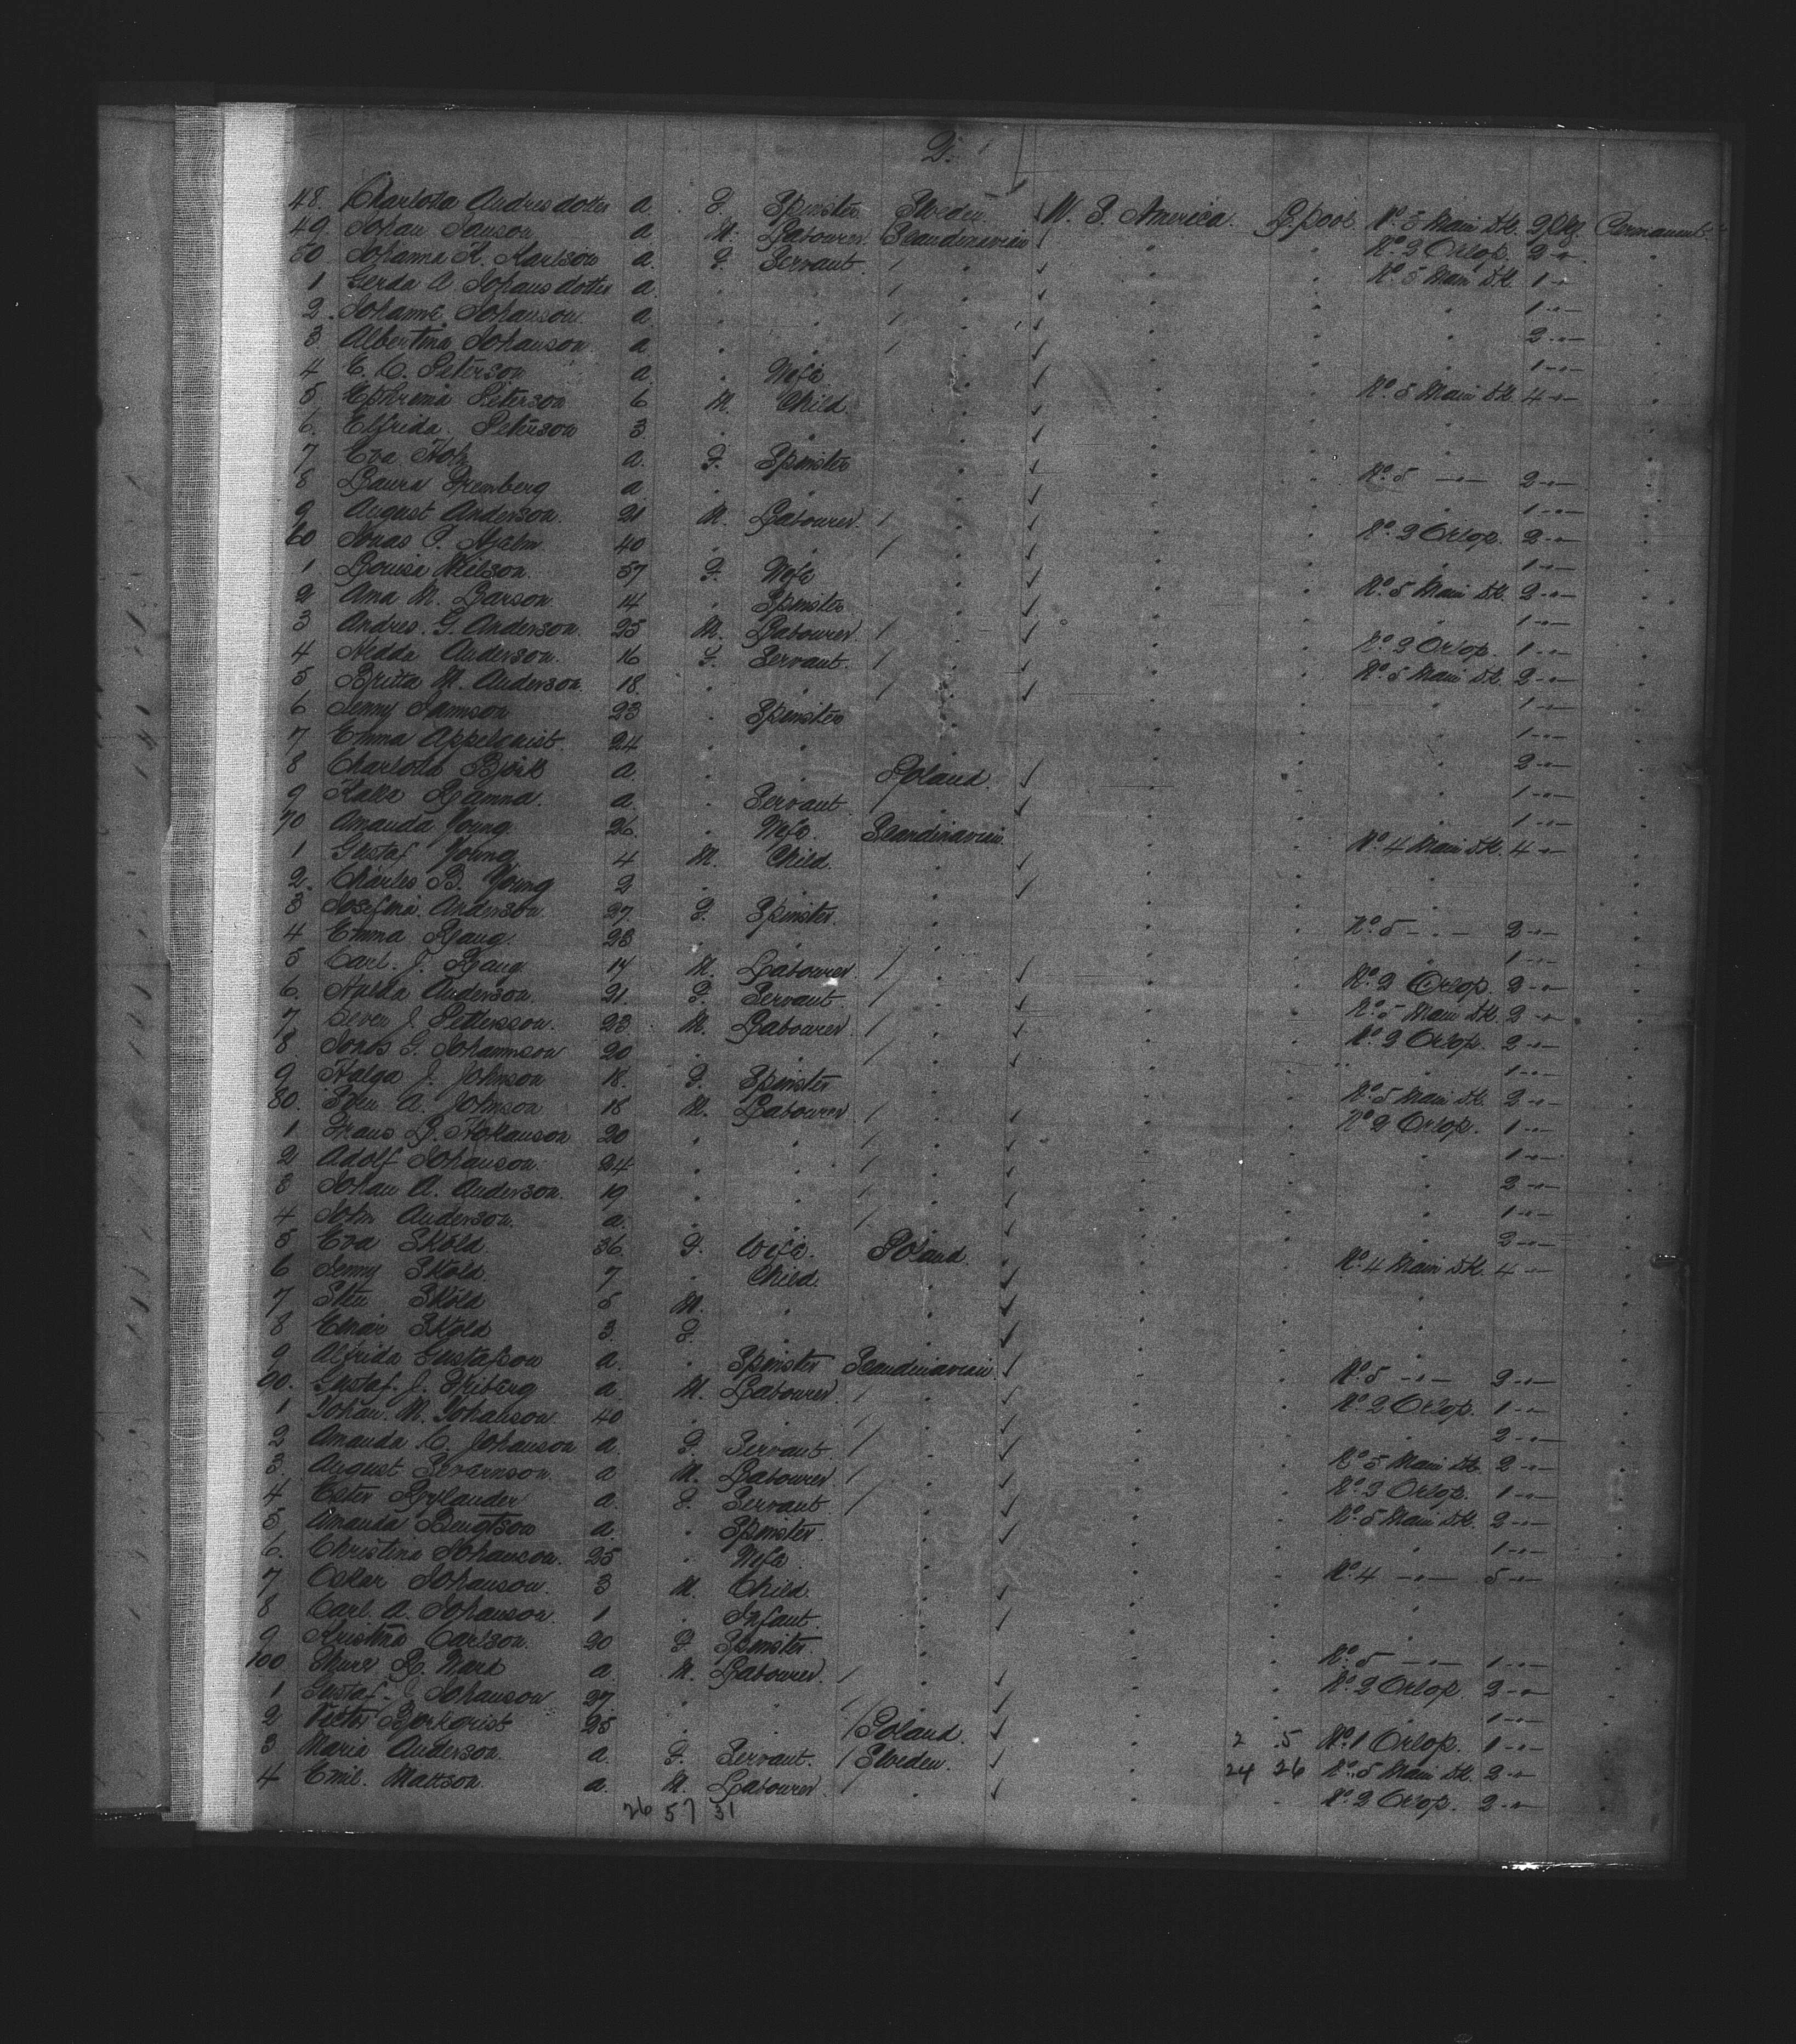 2.
48. Charlotta Andresdotter a. F. Spinster Sweden W. S. America. L'pool No. 5 Main Dk. 2 Pkg. Permanent
49. Johan Janson a. M. Labourer Scandinavian No. 2 Orlop. 2 "
50 Johanna K. Karlson a. F. Servant No. 5 Main Dk. 1 "
1 Gerda A Johansdotter a. 1 "
2. Johanne Johanson a. 2 "
3. Albertina Johanson a 1 "
4 C. C. Peterson a. Wife No. 5 Main Dk. 4 "
5 Ephremia Peterson 6 M. Child
6. Elfrida. Peterson 3
7 Eva a. F. Spinster No. 5 " 2 "
8 Laura a 1 "
9 August Anderson. 21 M. Labourer. No. 2 Orlop. 2 "
60 Jonas P. 40 1 "
1 Louisa Neilson. 57 F. Wife No. 5 Main Dk. 2 "
2 Ana M. Larson 14 Spinster 1 "
3 Andres. G. Anderson. 25 M. Labourer. No. 2 Orlop. 1 "
4 Hedda Anderson. 16 F. Servant. No. 5 Main Dk. 2 "
5 Britta M. Anderson. 18. 1 "
6 Jenny Samson 23 Spinster 1 "
7 Emma Appelquist. 24 2 "
8 Charlotta Björk a. Poland. 1 "
9 Kaisa a. Servant 1 "
70 Amanda Young 26. Wife. Scandinavian No. 4 Main Dk. 4 "
1 Gustaf Young 4 M. Child.
2. Charles B. Young 2
3 Josefina Anderson. 27. F. Spinster. No. 5 " 2 "
4 Emma 23 1 "
5 Carl. J. 17 M. Labourer. No. 2 Orlop. 2 "
6. Hulda Anderson. 21. F. Servant. No. 5 Main Dk. 2 "
7 J. Pettersson. 23 M. Labourer. No. 2 Orlop. 2 "
8. G. Johannson 20 1 "
9 Halga J. Johnson 18. F. Spinster No. 5 Main Dk. 2 "
80. Sven A. Johnson 18 M. Labourer No. 2 Orlop. 1 "
1 Frans L. Hokanson 20 1 "
2 Adolf Johanson. 24 2 "
3 Johan A. Anderson. 19 1 "
4 John Anderson. a. 2 "
5 Eva Sköld. 36. F. Wife. Poland. No. 4 Main Dk. 4 "
6 Jenny Sköld. 7 Child.
7 Sköld 5 M.
8 Sköld 3. F.
9 Alfrida Gustafson a. Spinster Scandinavian No. 5 " 2 "
90. Gustaf. J. Friberg a. M. Labourer No. 2 Orlop. 1 "
1 Johan. M. Johanson. 40 2 "
2 Amanda C. Johanson a. F. Servant No. 5 Main Dk. 2 "
3. August a M. Labourer No. 2 Orlop. 1 "
4 Ester Rylander a. F. Servant No. 5 Main Dk. 2 "
5 Amanda Bengtson a. Spinster. 1 "
6. Christina Johanson. 25 Wife No. 4 " 5 "
7 Oskar Johanson. 3 M. Child.
8 Carl. A. Johanson. 1 Infant.
9 Kristina Carlson. 20 F. Spinster No. 5 " 1 "
100 a. M. Labourer. No. 2 Orlop. 2 "
1 Gustaf. J. Johanson 27 1 "
2 Victor Bjorkqvist 25 Poland. 2 5 No. 1 Orlop. 1 "
3 Maria Anderson. a. F. Servant. Sweden. 24 26 No. 5 Main Dk. 2 "
4 Emil. Mattson. a. M. Labourer. No. 2 Orlop. 2 "
26 57 31